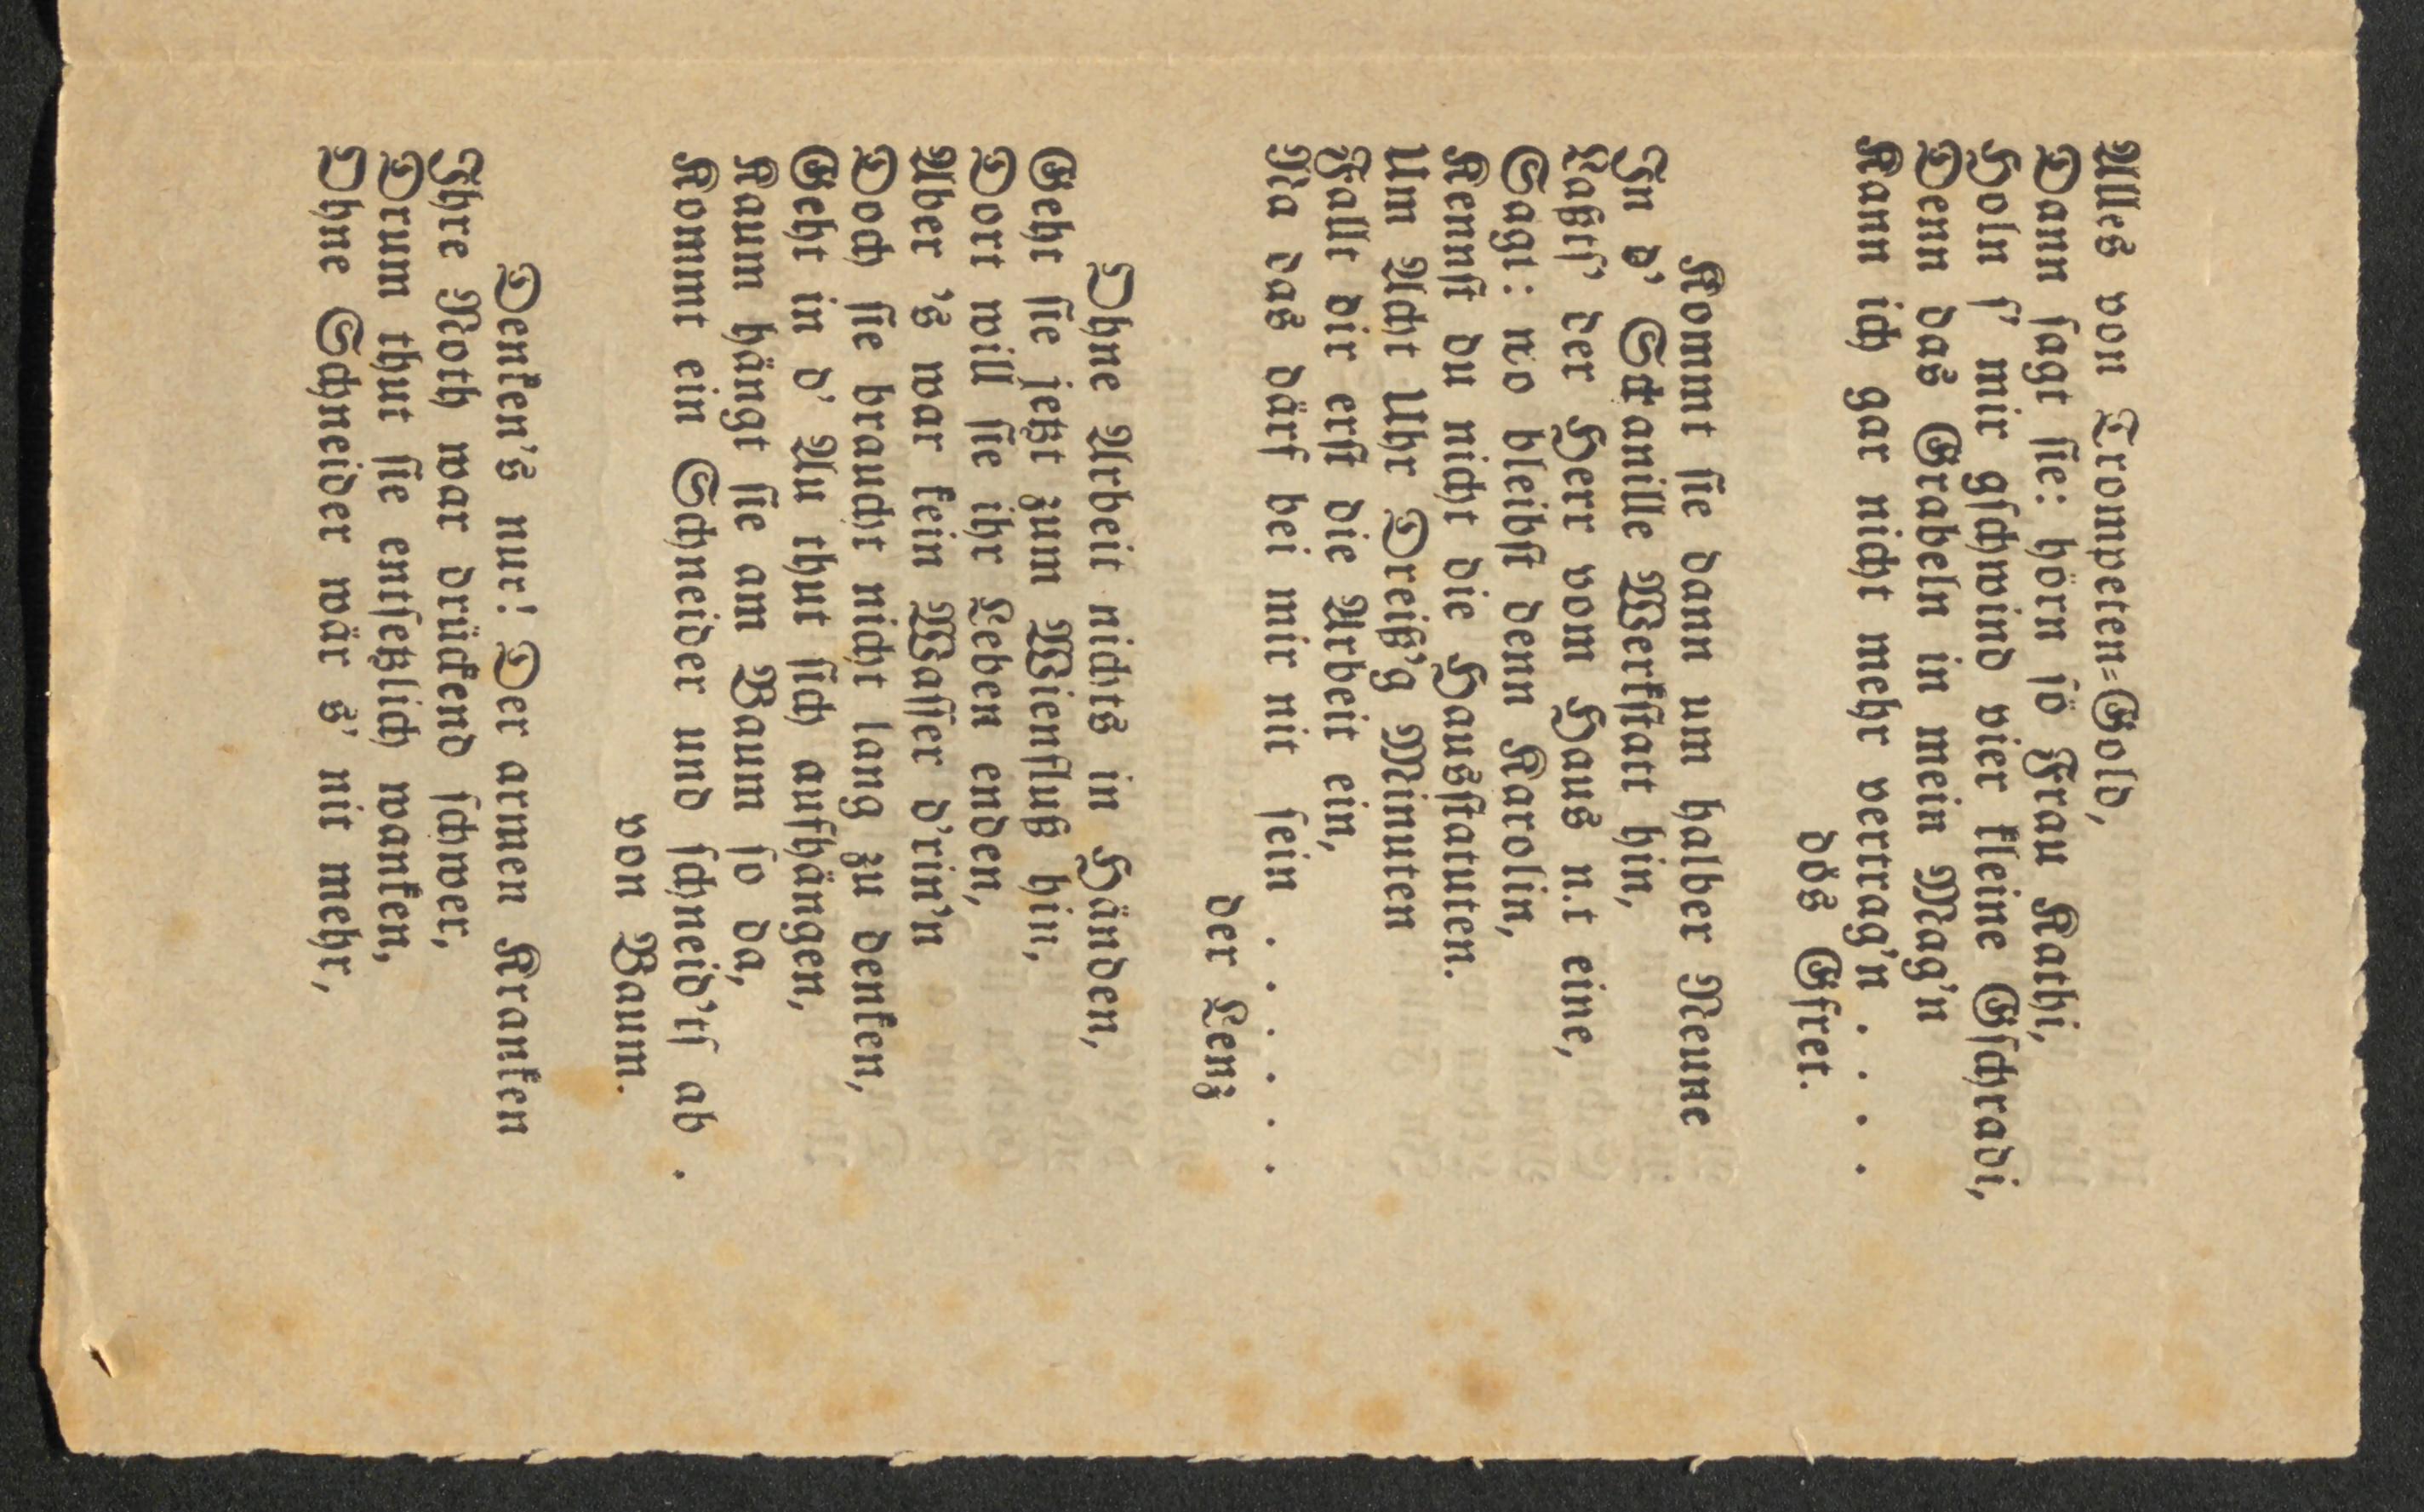 Alles von Trompeten-Gold,
Dann sagt sie: hörn sö Frau Kathi,
Holn s' mir gschwind vier kleine Gschradi,
Denn das Grabeln in mein Mag'n
Kann ich gar nicht mehr vertrag'n . . . .
dös Gfret.
Kommt sie dann um halber Neune
In d' Stramille Werkstatt hin,
Laßts' der Herr vom Haus n.t eine,
Sagt: wo bleibst denn Karolin,
Kennst du nicht die Hausstatuten.
Um Acht Uhr Dreiß'g Minuten
Fallt dir erst die Arbeit ein,
Na das därf bei mir nit sein . . . . . .
der Lenz
Ohne Arbeit nichts in Händen,
Geht sie jetzt zum Wienfluß hin,
Dort will sie ihr Leben enden,
Aber 's war kein Wasser d'rin'n
Doch sie braucht nicht lang zu denken,
Geht in d' Au thut sich aufhängen,
Kaum hängt sie am Baum so da,
Kommt ein Schneider und schneid'ts ab .
von Baum.
Denken's nur! Der armen Kranken
Ihre Noth war drückend schwer,
Drum thut sie entsetzlich wanken,
Ohne Schneider wär s' nit mehr,